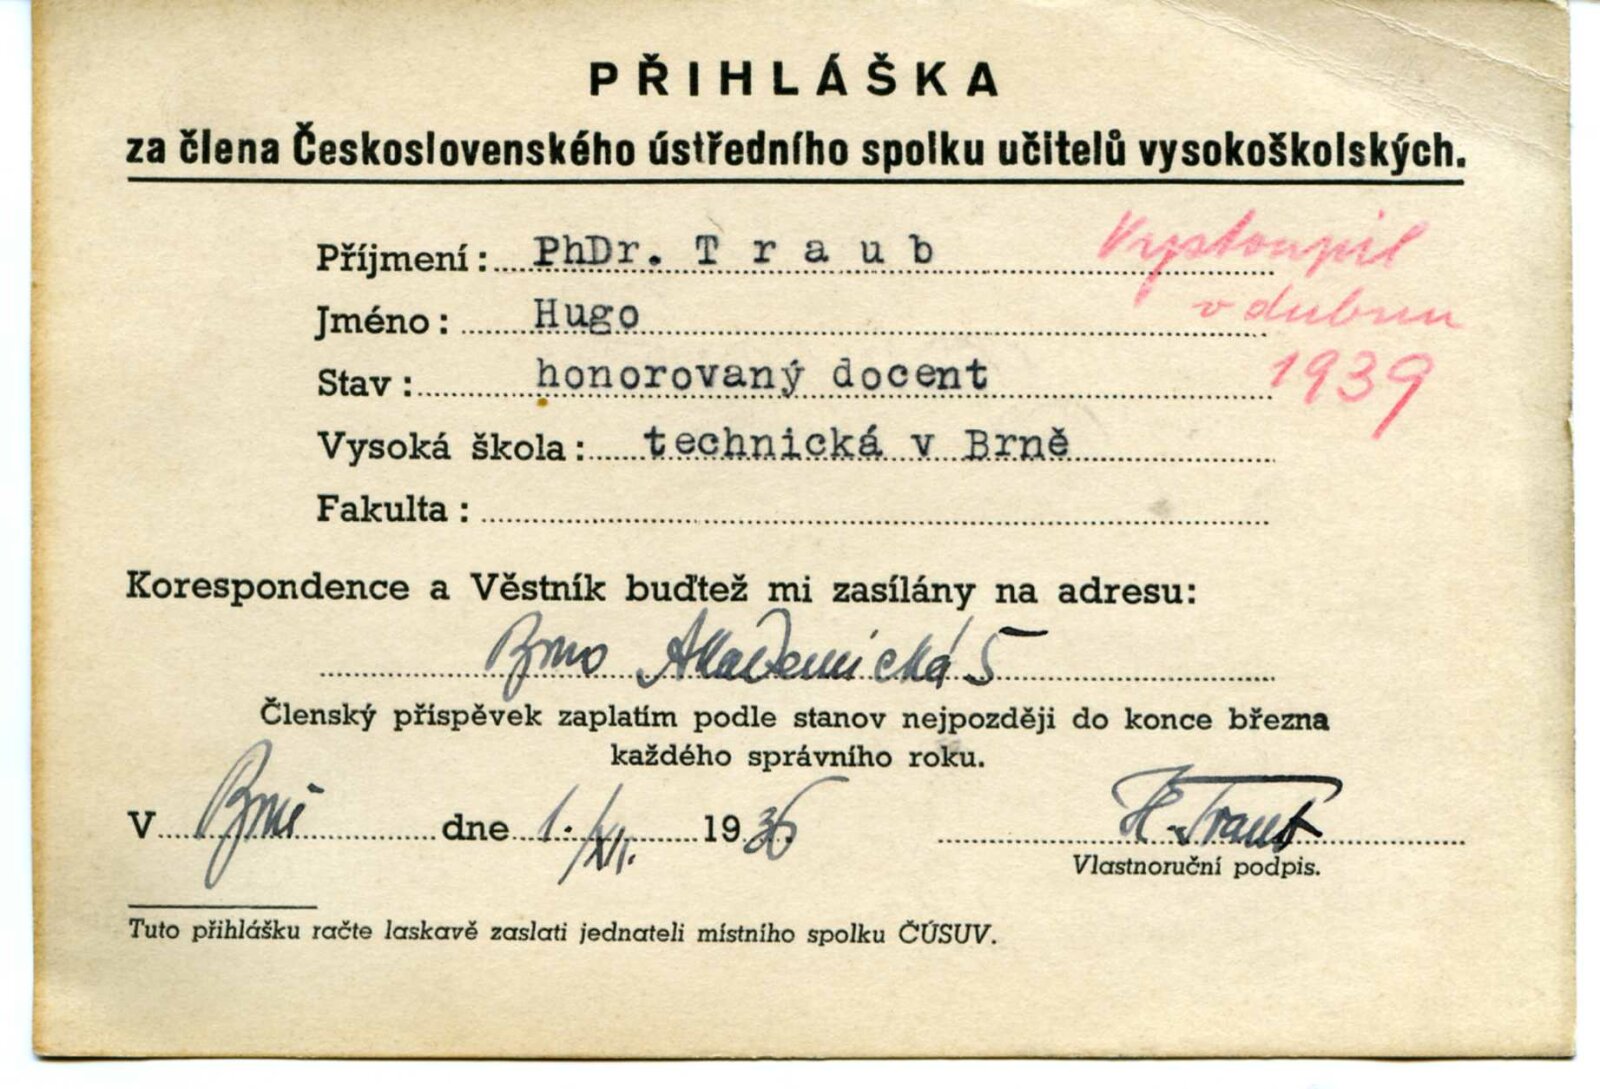 PŘIHLÁŠKA
za člena Československého ústředního spolku učitelů vysokoškolských.
Příjmení: PhDr. Traub
Vystoupil
Jméno: Hugo
v dubnu
Stav: honorovaný docent
1939
Vysoká škola: technická v Brně
Fakulta:
Korespondence a Věstník buďtež mi zasílány na adresu:
Brno Akademická 5
Členský příspěvek zaplatím podle stanov nejpozději do konce března
každého správního roku.
V Brně dne 1./XII. 1936 H. Traub
Vlastnoruční podpis.
Tuto přihlášku račte laskavě zaslati jednateli místního spolku ČÚSUV.